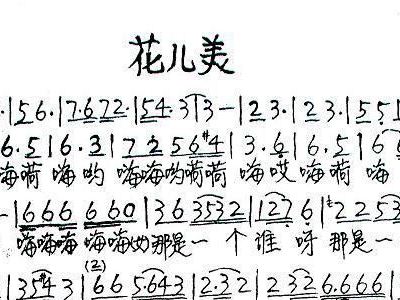 花儿美
·|56.|7.672.|543|3-|23.|23.|55
6.5|6.3|7256#4|3.6|6.5|6
嗨嗬 嗨哟 嗨嗨哟嗬嗬 嗨哎嗨嗬 嗨
-|666 660|36 3532|127 6|2253
嗨嗨嗨 嗨嗨哟那是一 个 谁 呀 那是一
(2)
|35#43|66 5.643|2.32|232 6.666|